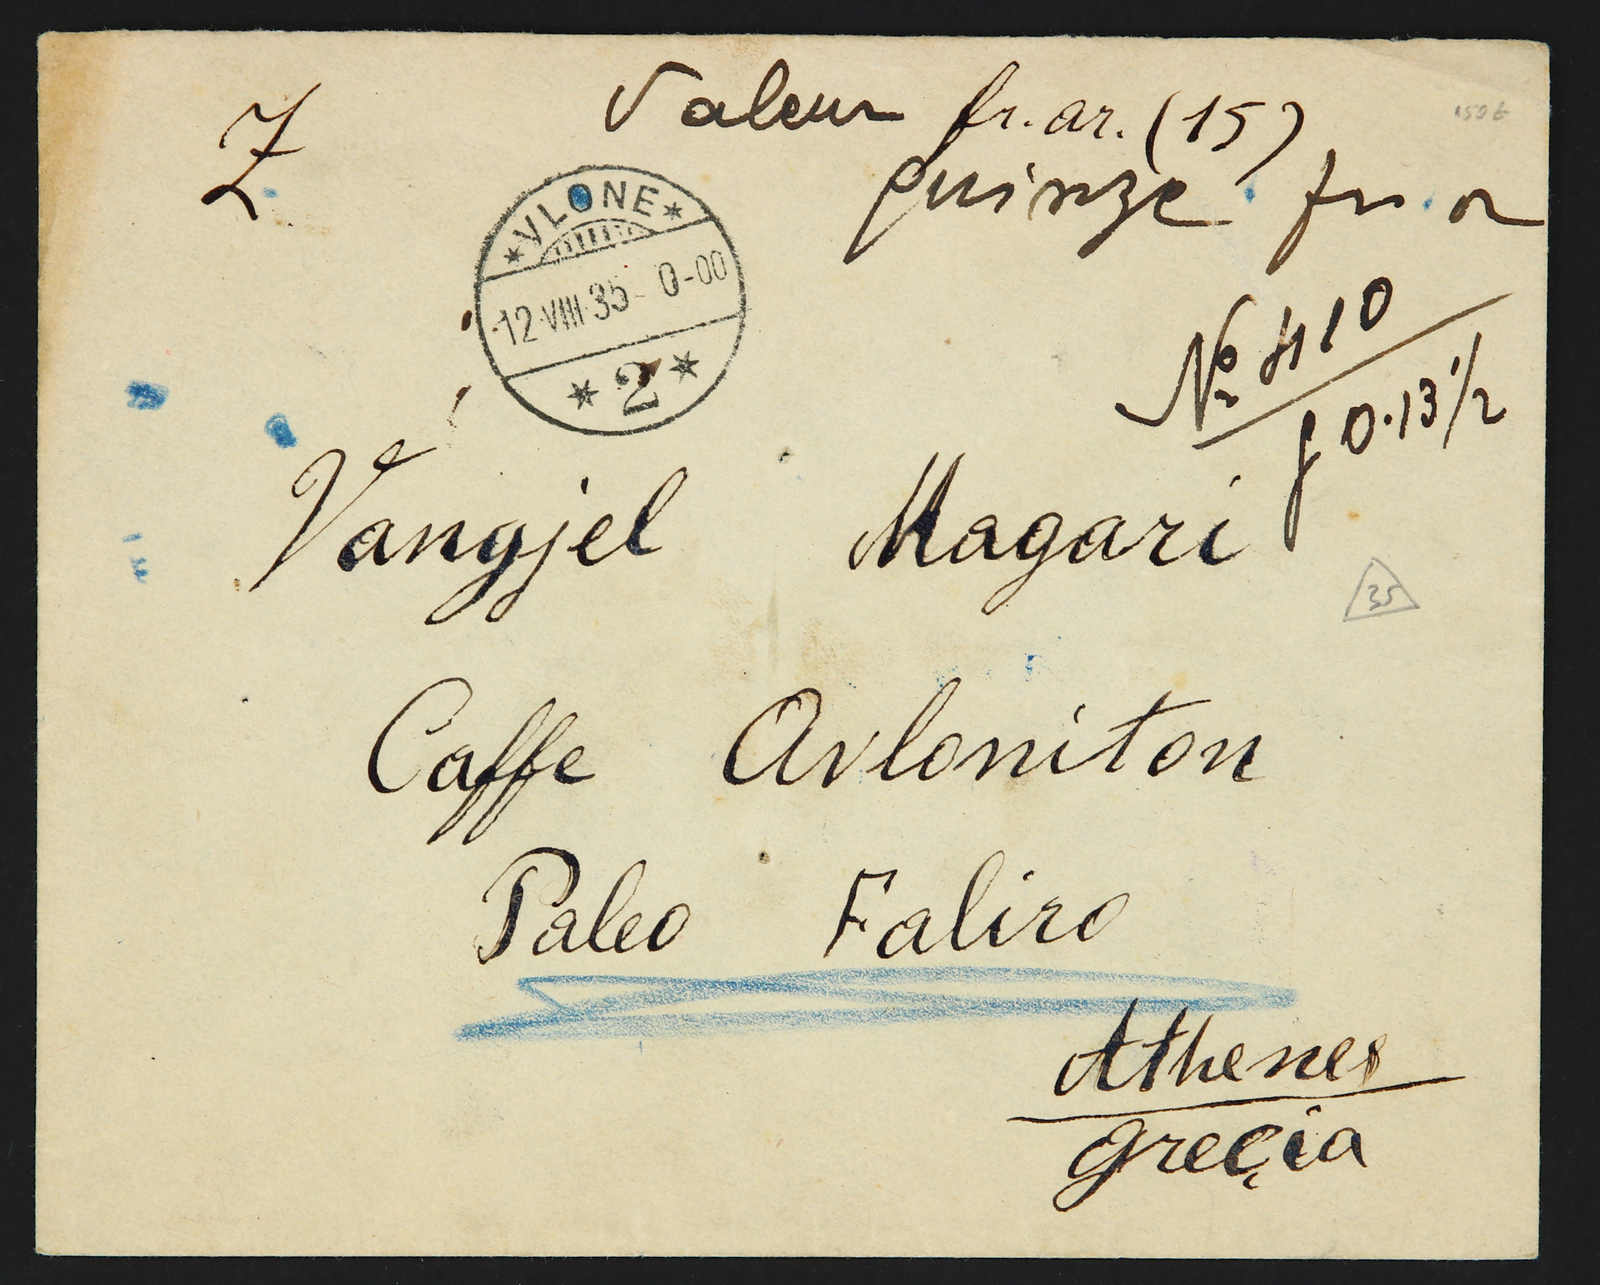 Z
Valeur fr. ar. (15)
quinze fr or
VLONE
12·VIII·35- 0-00
2
№ 410
g 0.13 1/2
Vangjel Magari
35
Caffe Avloniton
Paleo Faliro
Athenes
Greçia